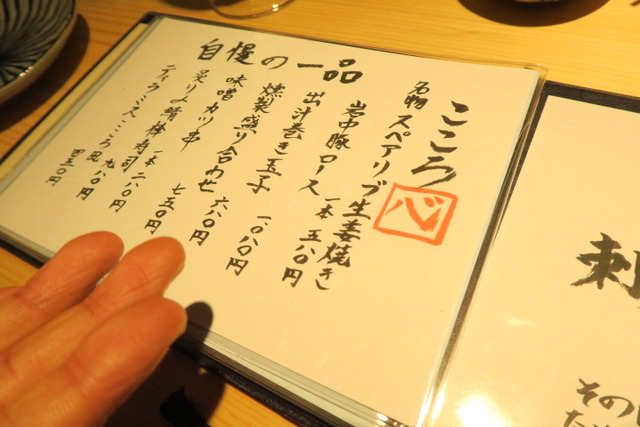 自慢の一品
こころ
心
名物 スペアリブ生姜焼き
岩中豚 ロース 一本 五八〇円
出汁巻き玉子 一〇八〇円
燻製盛り合わせ 六八〇円
味噌カツ串 七五〇円
炙り〆鯖棒寿司 一本 二八〇円
ティラミス こころ風 九八〇円
四五〇円
刺
その